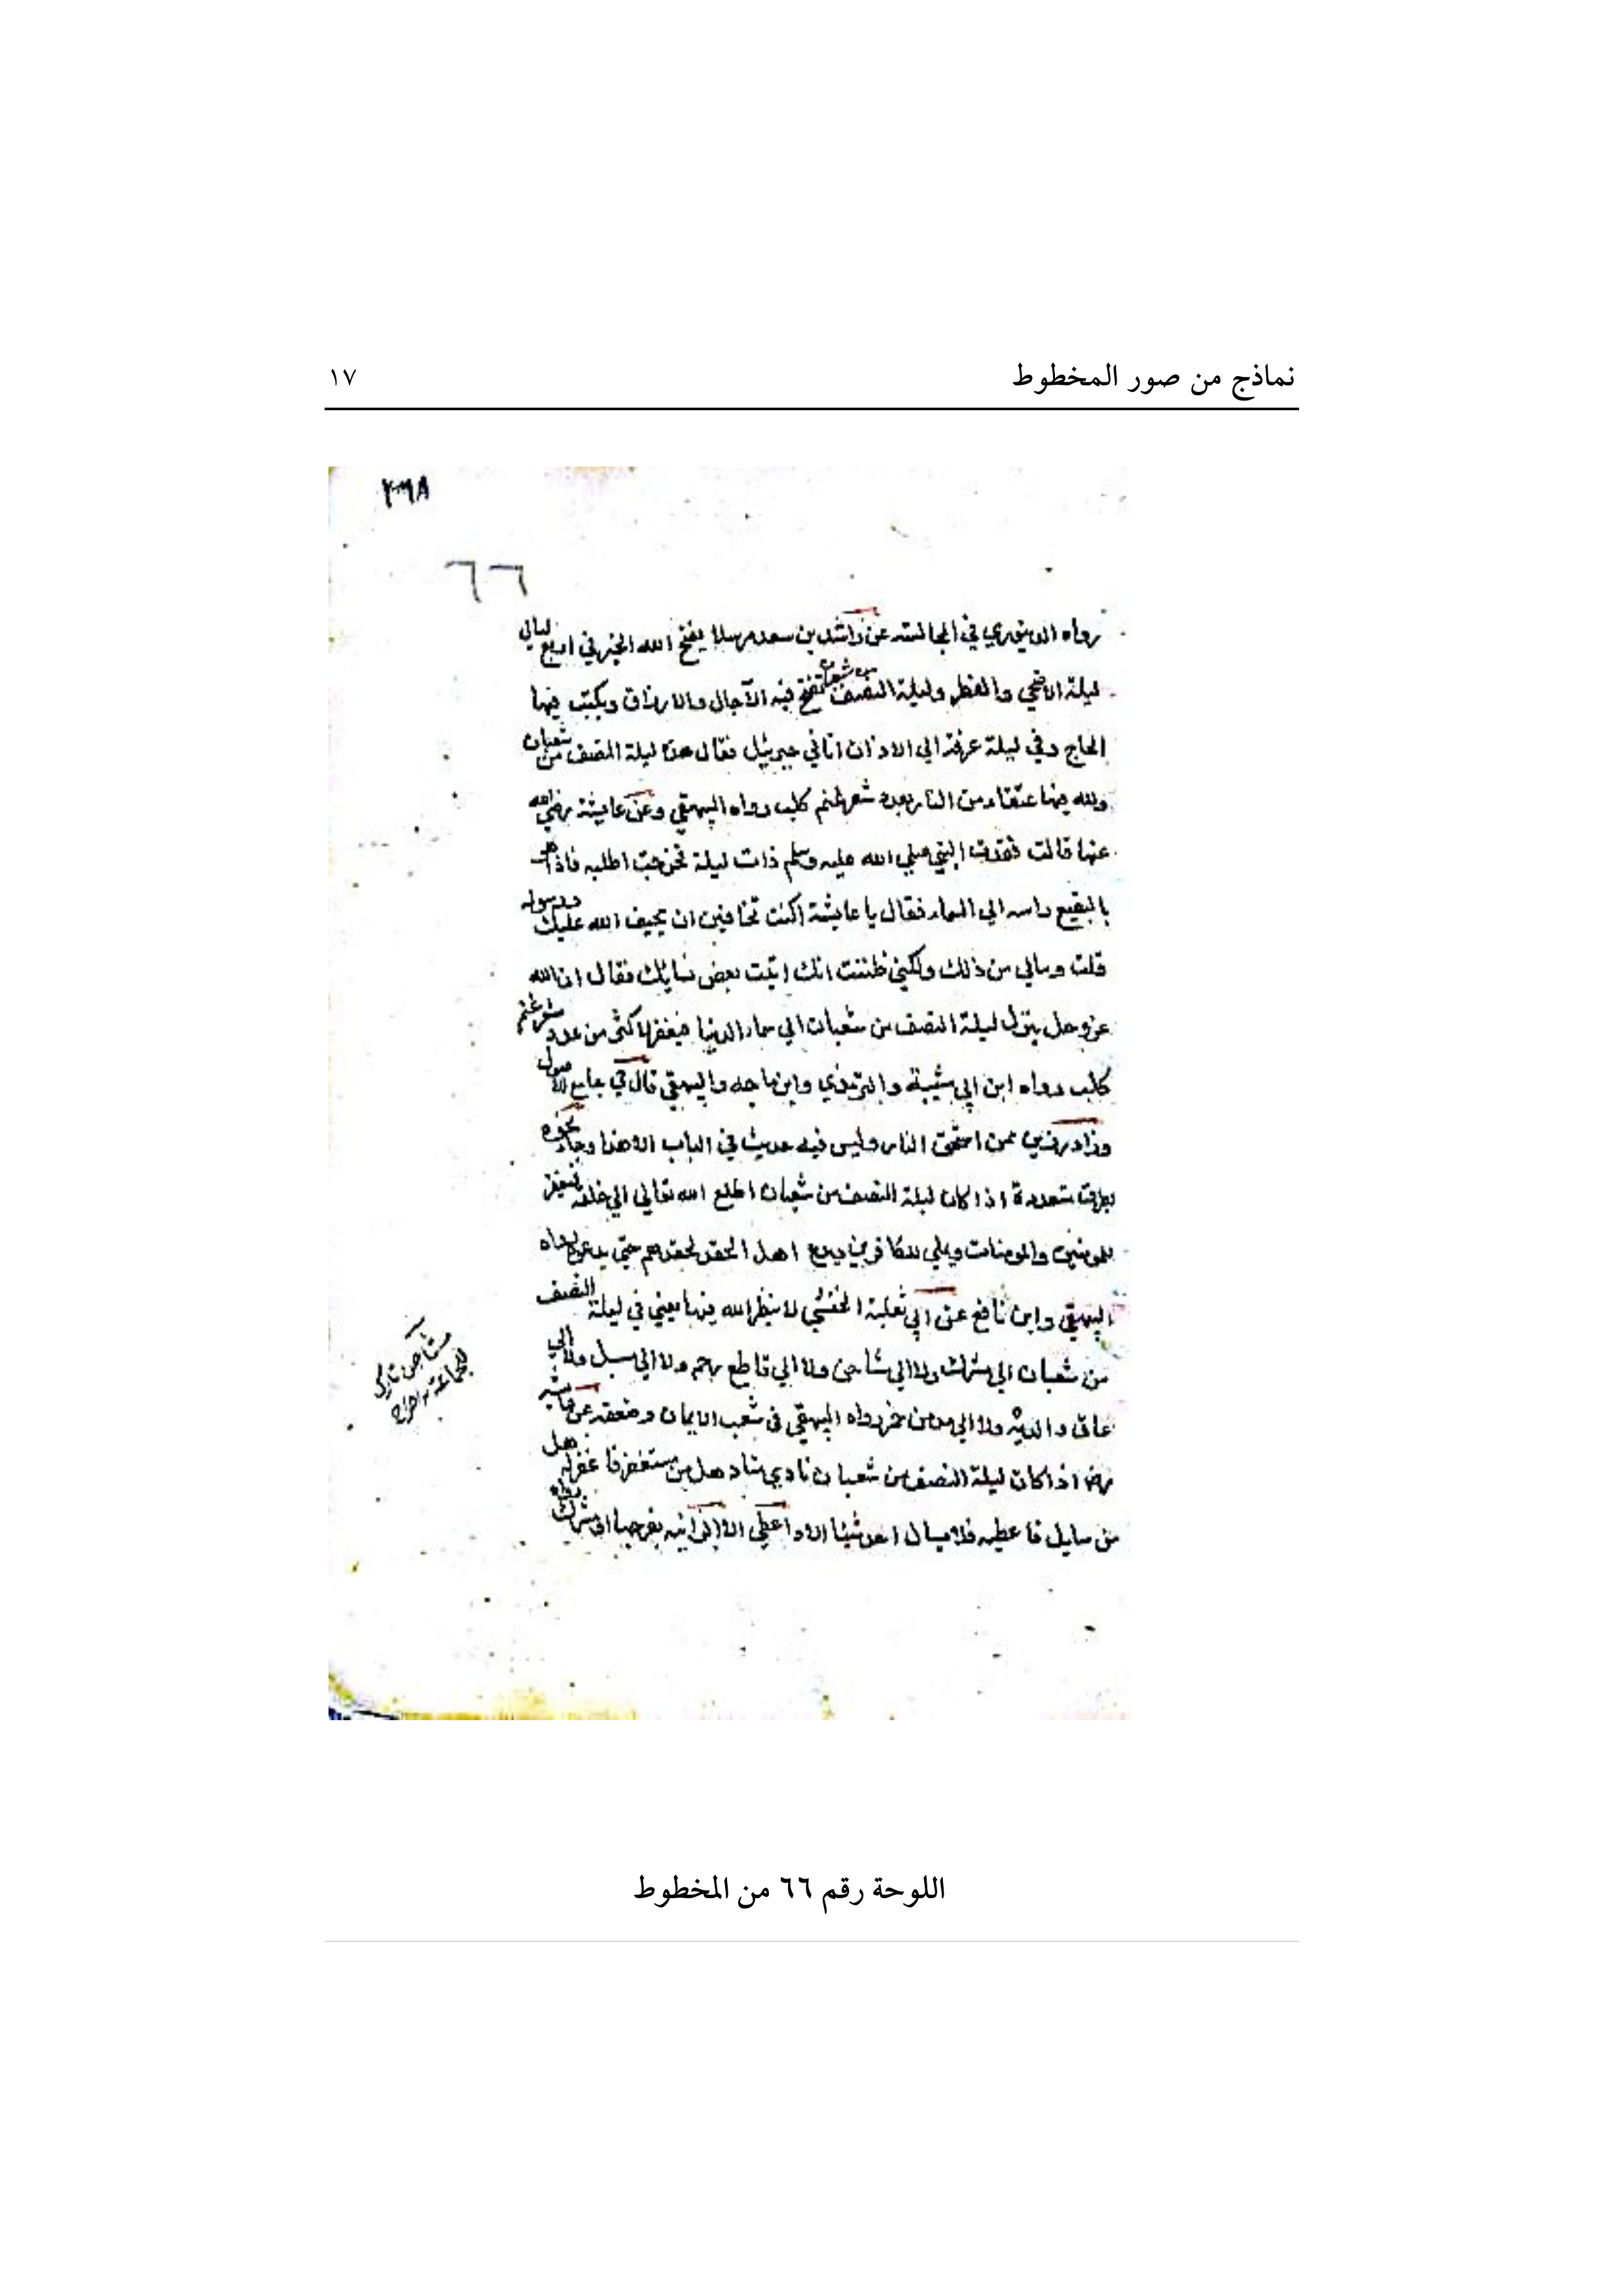 نماذج من صور المخطوط ١٧
٢٩٨
٦٦
رواه الدينوري في المجالسة عن راشد بن سعد مرسلا يفتح الله الخير في اربع ليالي
ليلة الاضحي والفطر وليلة النصف من شعبان تنسخ فيه الآجال والارزاق ويكتب فيها
الحاج وفي ليلة عرفة الي الاذان اتاني جبرئيل فقال هذه ليلة النصف من شعبان
ولله فيها عتقاء من النار بعدد شعر غنم كلب رواه البيهقي وعن عايشة رضي الله
عنها قالت فقدت النبي صلي الله عليه وسلم ذات ليلة فخرجت اطلبه فاذا هو
بالبقيع راسه الي السماء فقال يا عايشة اكنت تخافين ان يحيف الله عليك ورسوله
قلت ومالي من ذلك ولكني ظننت انك اتيت بعض نسايك فقال ان الله
عز وجل ينزل ليلة النصف من شعبان الي سماء الدنيا فيغفر لاكثر من عدد شعر غنم
كلب رواه ابن ابي شيبة والترمذي وابن ماجه والبيهقي قال في جامع الاصول
وزاد رزين ممن استحق النار وليس فيه حديث في الباب الا هذا وجاء نحوه
بطرق متعددة اذا كان ليلة النصف من شعبان اطلع الله تعالي الي خلقه فيغفر
للمومنين والمومنات ويملي للكافرين ويدع اهل الحقد لحقدهم حتي يدعوه رواه
البيهقي وابن نافع عن ابي ثعلبة الخشني لا ينظر الله فيها يعني في ليلة النصف
من شعبان الي مشرك ولا الي مشاحن ولا الي قاطع رحم ولا الي مسبل ولا الي
عاق والديه ولا الي مدمن خمر رواه البيهقي في شعب الايمان وضعفه عن عايشة
رضا اذا كان ليلة النصف من شعبان نادي مناد هل من مستغفر فاغفر له هل
من سايل فاعطيه فلا يسال احد شيئا الا واعطي الا زانية بفرجها او مشرك رواه
مشاحن تارك
للجماعة
اللوحة رقم ٦٦ من المخطوط